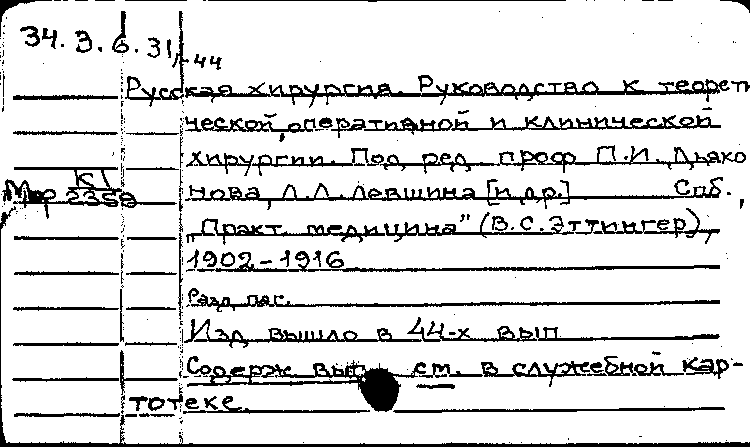 34.3.6.31/1-44
Русская хирургия. Руководство к теорет
ческой, оперативной и клинической
хирургии. Под ред. проф П.И. Дьяко
нова, Л.Л. Левшина [и др.] Спб.,
"Практ. медицина" (В.С. Эттингер),
1902-1916
Разд. паг.
Изд вышло в 44-х вып
Содерж вып. см. в служебной кар-
тотеке.
К1
Мор 2359